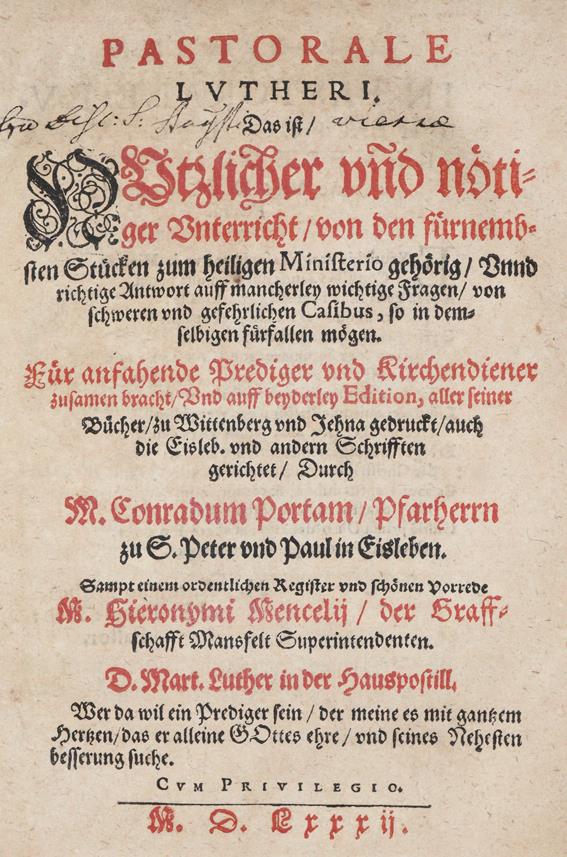 PASTORALE
LVTHERI.
Das ist / vierzæ
NVtzlicher vñd nöti-
ger Vnterricht / von den fürnemb-
sten Stücken zum heiligen Ministerio gehörig / Vnnd
richtige Antwort auff mancherley wichtige Fragen / von
schweren vnd gefehrlichen Casibus, so in dem-
selbigen fürfallen mögen.
Für anfahende Prediger vnd Kirchendiener
zusamen bracht / Vnd auff beyderley Edition, aller seiner
Bücher / zu Wittenberg vnd Jehna gedruckt / auch
die Eisleb. vnd andern Schrifften
gerichtet / Durch
M. Conradum Portam / Pfarherrn
zu S. Peter vnd Paul in Eisleben.
Sampt einem ordentlichen Register vnd schönen Vorrede
M. Hieronymi Mencelij / der Graff-
schafft Mansfelt Superintendenten.
D. Mart. Luther in der Hauspostill.
Wer da wil ein Prediger sein / der meine es mit gantzem
Hertzen / das er alleine GOttes ehre / vnd seines Nehesten
besserung suche.
CVM PRIVILEGIO.
M. D. Lxxxij.